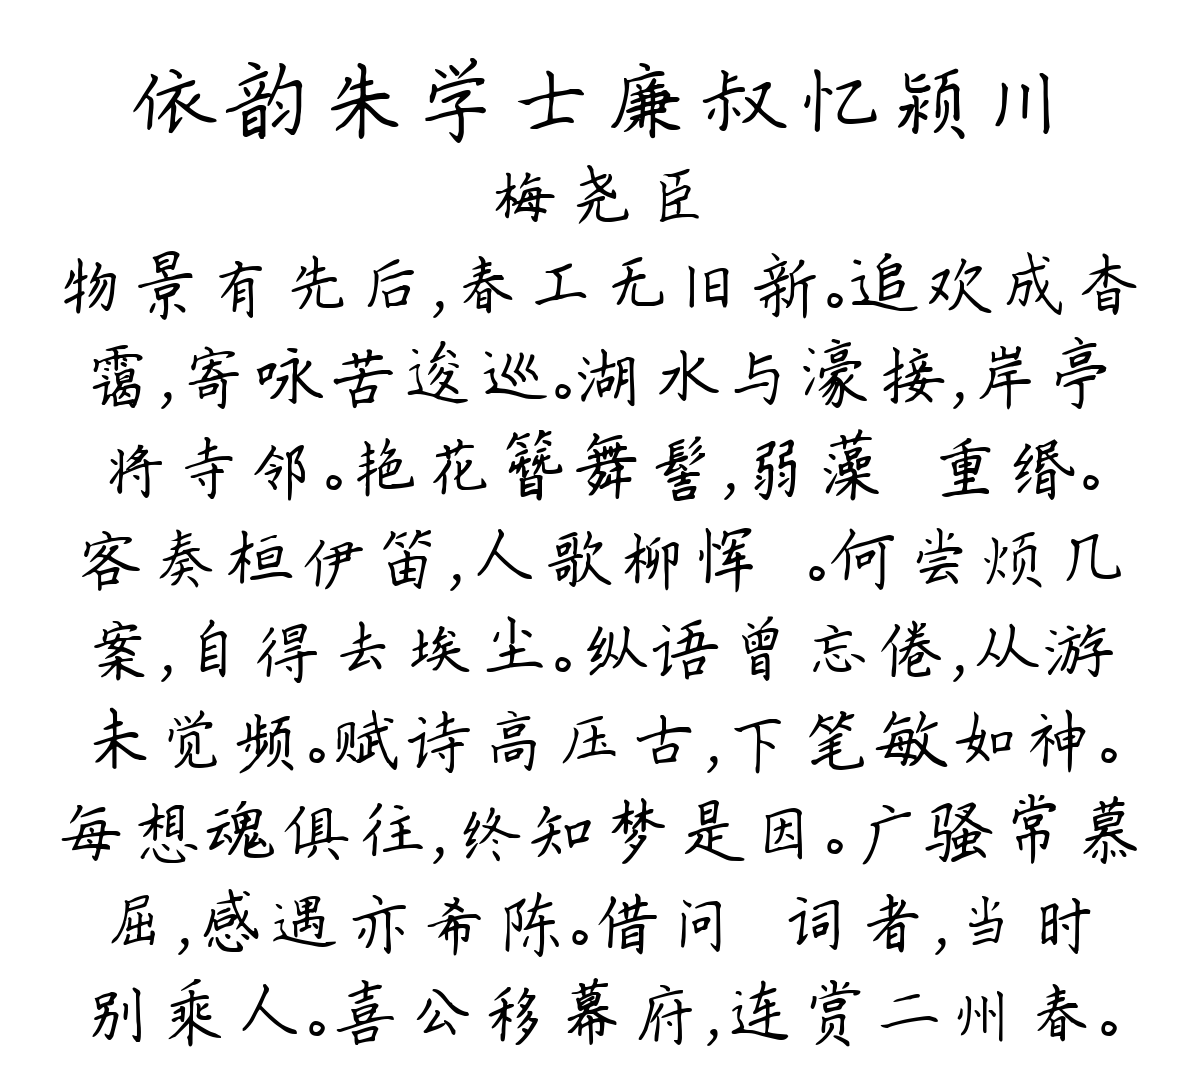 依韵朱学士廉叔忆颍川
梅尧臣
物景有先后,春工无旧新。追欢成杳
霭,寄咏苦逡巡。湖水与濠接,岸亭
将寺邻。艳花簪舞髻,弱藻 重缗。
客奏桓伊笛,人歌柳恽 。何尝烦几
案,自得去埃尘。纵语曾忘倦,从游
未觉频。赋诗高压古,下笔敏如神。
每想魂俱往,终知梦是因。广骚常慕
屈,感遇亦希陈。借问 词者,当时
别乘人。喜公移幕府,连赏二州春。